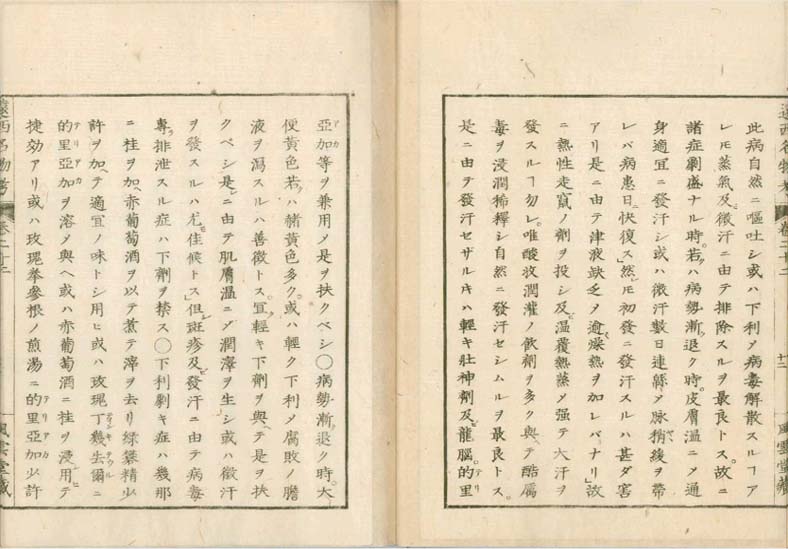 此病自然ニ嘔吐シ或ハ下利メ病毒解散スルヿア
レモ蒸氣及ビ微汗ニ由テ排除スルヲ最良トス。故ニ
諸症劇盛ナル時。若クハ病勢漸ク退ク時。皮膚温ニメ通
身適宜ニ發汗シ或ハ微汗數日連緜メ脉稍緩ヲ帶
レバ病患日ニ快復ス「然レモ初發ニ發汗スルハ甚ダ害
アリ是ニ由テ津液缺乏ヲ逾燥熱ヲ加レバナリ」故
ニ熱性走竄ノ劑ヲ投シ及ビ温覆熱蒸メ强テ大汗ヲ
發スルヿ勿レ。唯酸收潤灌ノ飲劑ヲ多ク與ヘテ酷厲
毒ヲ浸潤稀釋シ自然ニ發汗セシムルヲ最良トス。
是ニ由テ發汗セザルキハ輕キ壯神劑及ビ龍腦。的里
亞加等ヲ兼用メ是ヲ扶クベシ〇病勢漸ク退ク時。大
便黄色若クハ赭黄色多ク。或ハ輕ク下利メ腐敗ノ膽
液ヲ瀉スルハ善徴トス。宜ク輕キ下劑ヲ與ヘテ是ヲ扶
クベシ是ニ由テ肌膚温ニメ潤澤ヲ生シ或ハ微汗
ヲ發スルハ尤佳候トス」但シ斑疹及ビ發汗ニ由テ病毒
專ラ排泄スル症ハ下劑ヲ禁ス〇下利劇キ症ハ幾那
ニ桂ヲ加ヘ赤葡萄酒ヲ以テ煮テ滓ヲ去リ緑礬精少
許ヲ加ヘテ適宜ノ味トシ用ヒ或ハ玫瑰丁幾去爾ニ
的里亞加ヲ溶メ與ヘ或ハ赤葡萄酒ニ桂ヲ浸シ用ヒテ
捷効アリ或ハ玫瑰拳參根ノ煎湯ニ的里亞加少許
遠西名物考
卷二十二
十二
風雲堂藏